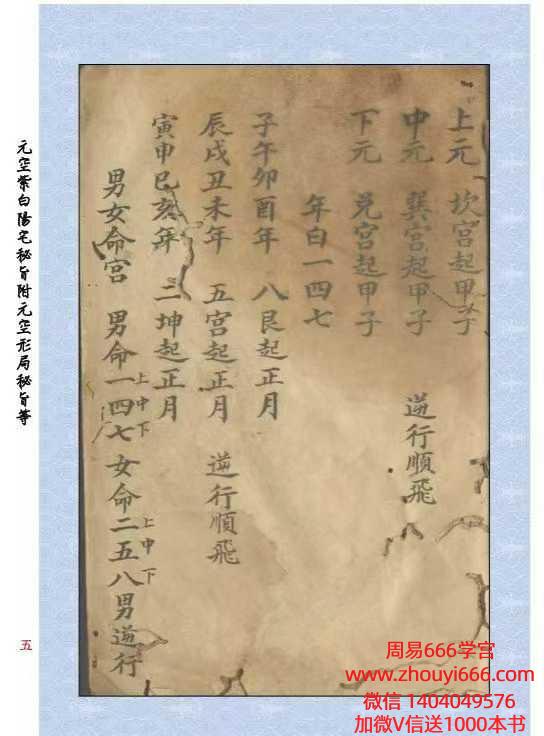 上元 坎宫起甲子
中元 巽宫起甲子 逆行順飛
下元 兑宫起甲子
年白一四七
子午卯酉年 八艮起正月
辰戌丑未年 五宫起正月 逆行順飛
寅申巳亥年 二坤起正月
男女命宫 男命一四七上中下 女命二五八上中下 男逆行
元空紫白陽宅秘旨附元空形局秘旨等
五
周易666学宫
www.zhouyi666.com
微信 1404049576
加微V信送1000本书